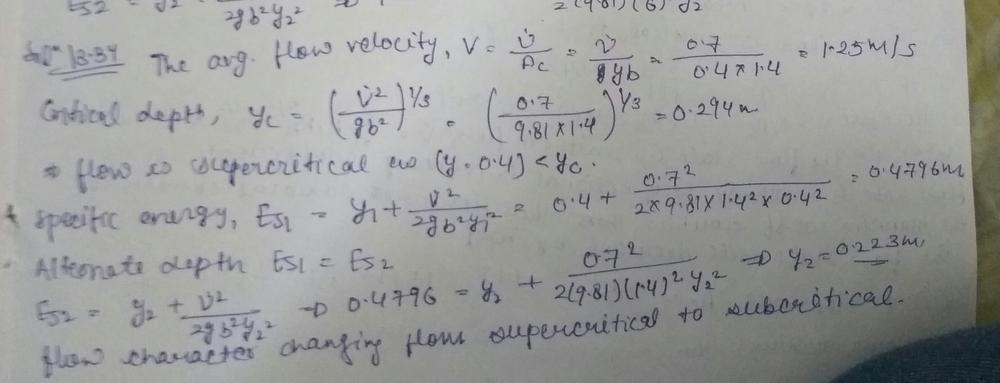 Es2 = y2 + / 2gb²y2² ⇒ 2(9.81)(6)² y2²
Solⁿ 13.34 The avg. flow velocity, V = V̇/Ac = V̇/yb = 0.7/(0.4×1.4) = 1.25 m/s
Critical depth, yc = (V̇²/gb²)^1/3 = (0.7/(9.81×1.4))^1/3 = 0.294m
⇒ flow is supercritical as (y = 0.4) < yc.
specific energy, Es1 = y1 + V̇²/(2gb²y1²) = 0.4 + 0.7²/(2×9.81×1.4²×0.4²) = 0.4796m
Alternate depth Es1 = Es2
Es2 = y2 + V̇²/(2gb²y2²) ⇒ 0.4796 = y2 + 0.7²/(2(9.81)(1.4)² y2²) ⇒ y2 = 0.223m
flow character changing from supercritical to subcritical.